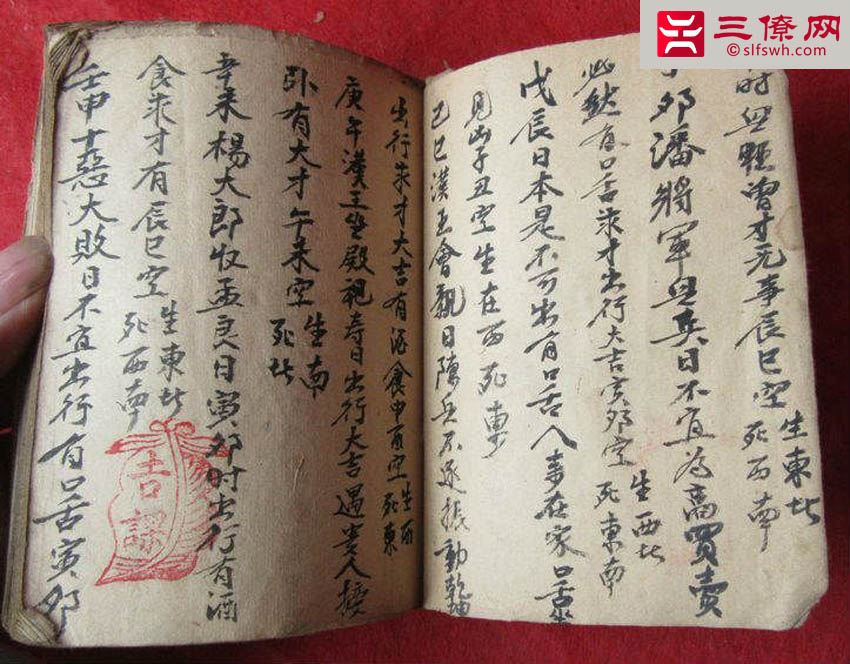 三僚网
slfswh.com
时無賍曽才元事辰巳空 生東北 死西南
卯潘將軍無兵日不宜為商買賣
必然有口舌求才出行大吉寅卯空 生西北 死東南
戊辰日本是不可出有口舌人來在家口舌
見凶子丑空生在西死東
己巳漢王會親日陳兵不逐振動乾坤
出行求才大吉有酒食申酉空 生西 死東
庚午漢王坐殿祝寿日出行大吉遇貴人接
卦有大才午未空 生南 死北
辛未楊大郎收孟良日寅卯时出行有酒
食求才有辰巳空 生東北 死西南
壬申十惡大敗日不宜出行有口舌寅卯
吉課